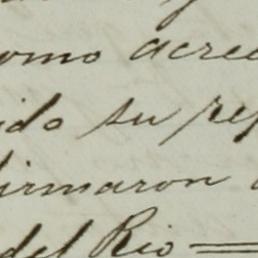 omo acree
ido su rep
firmaron
del Rio =